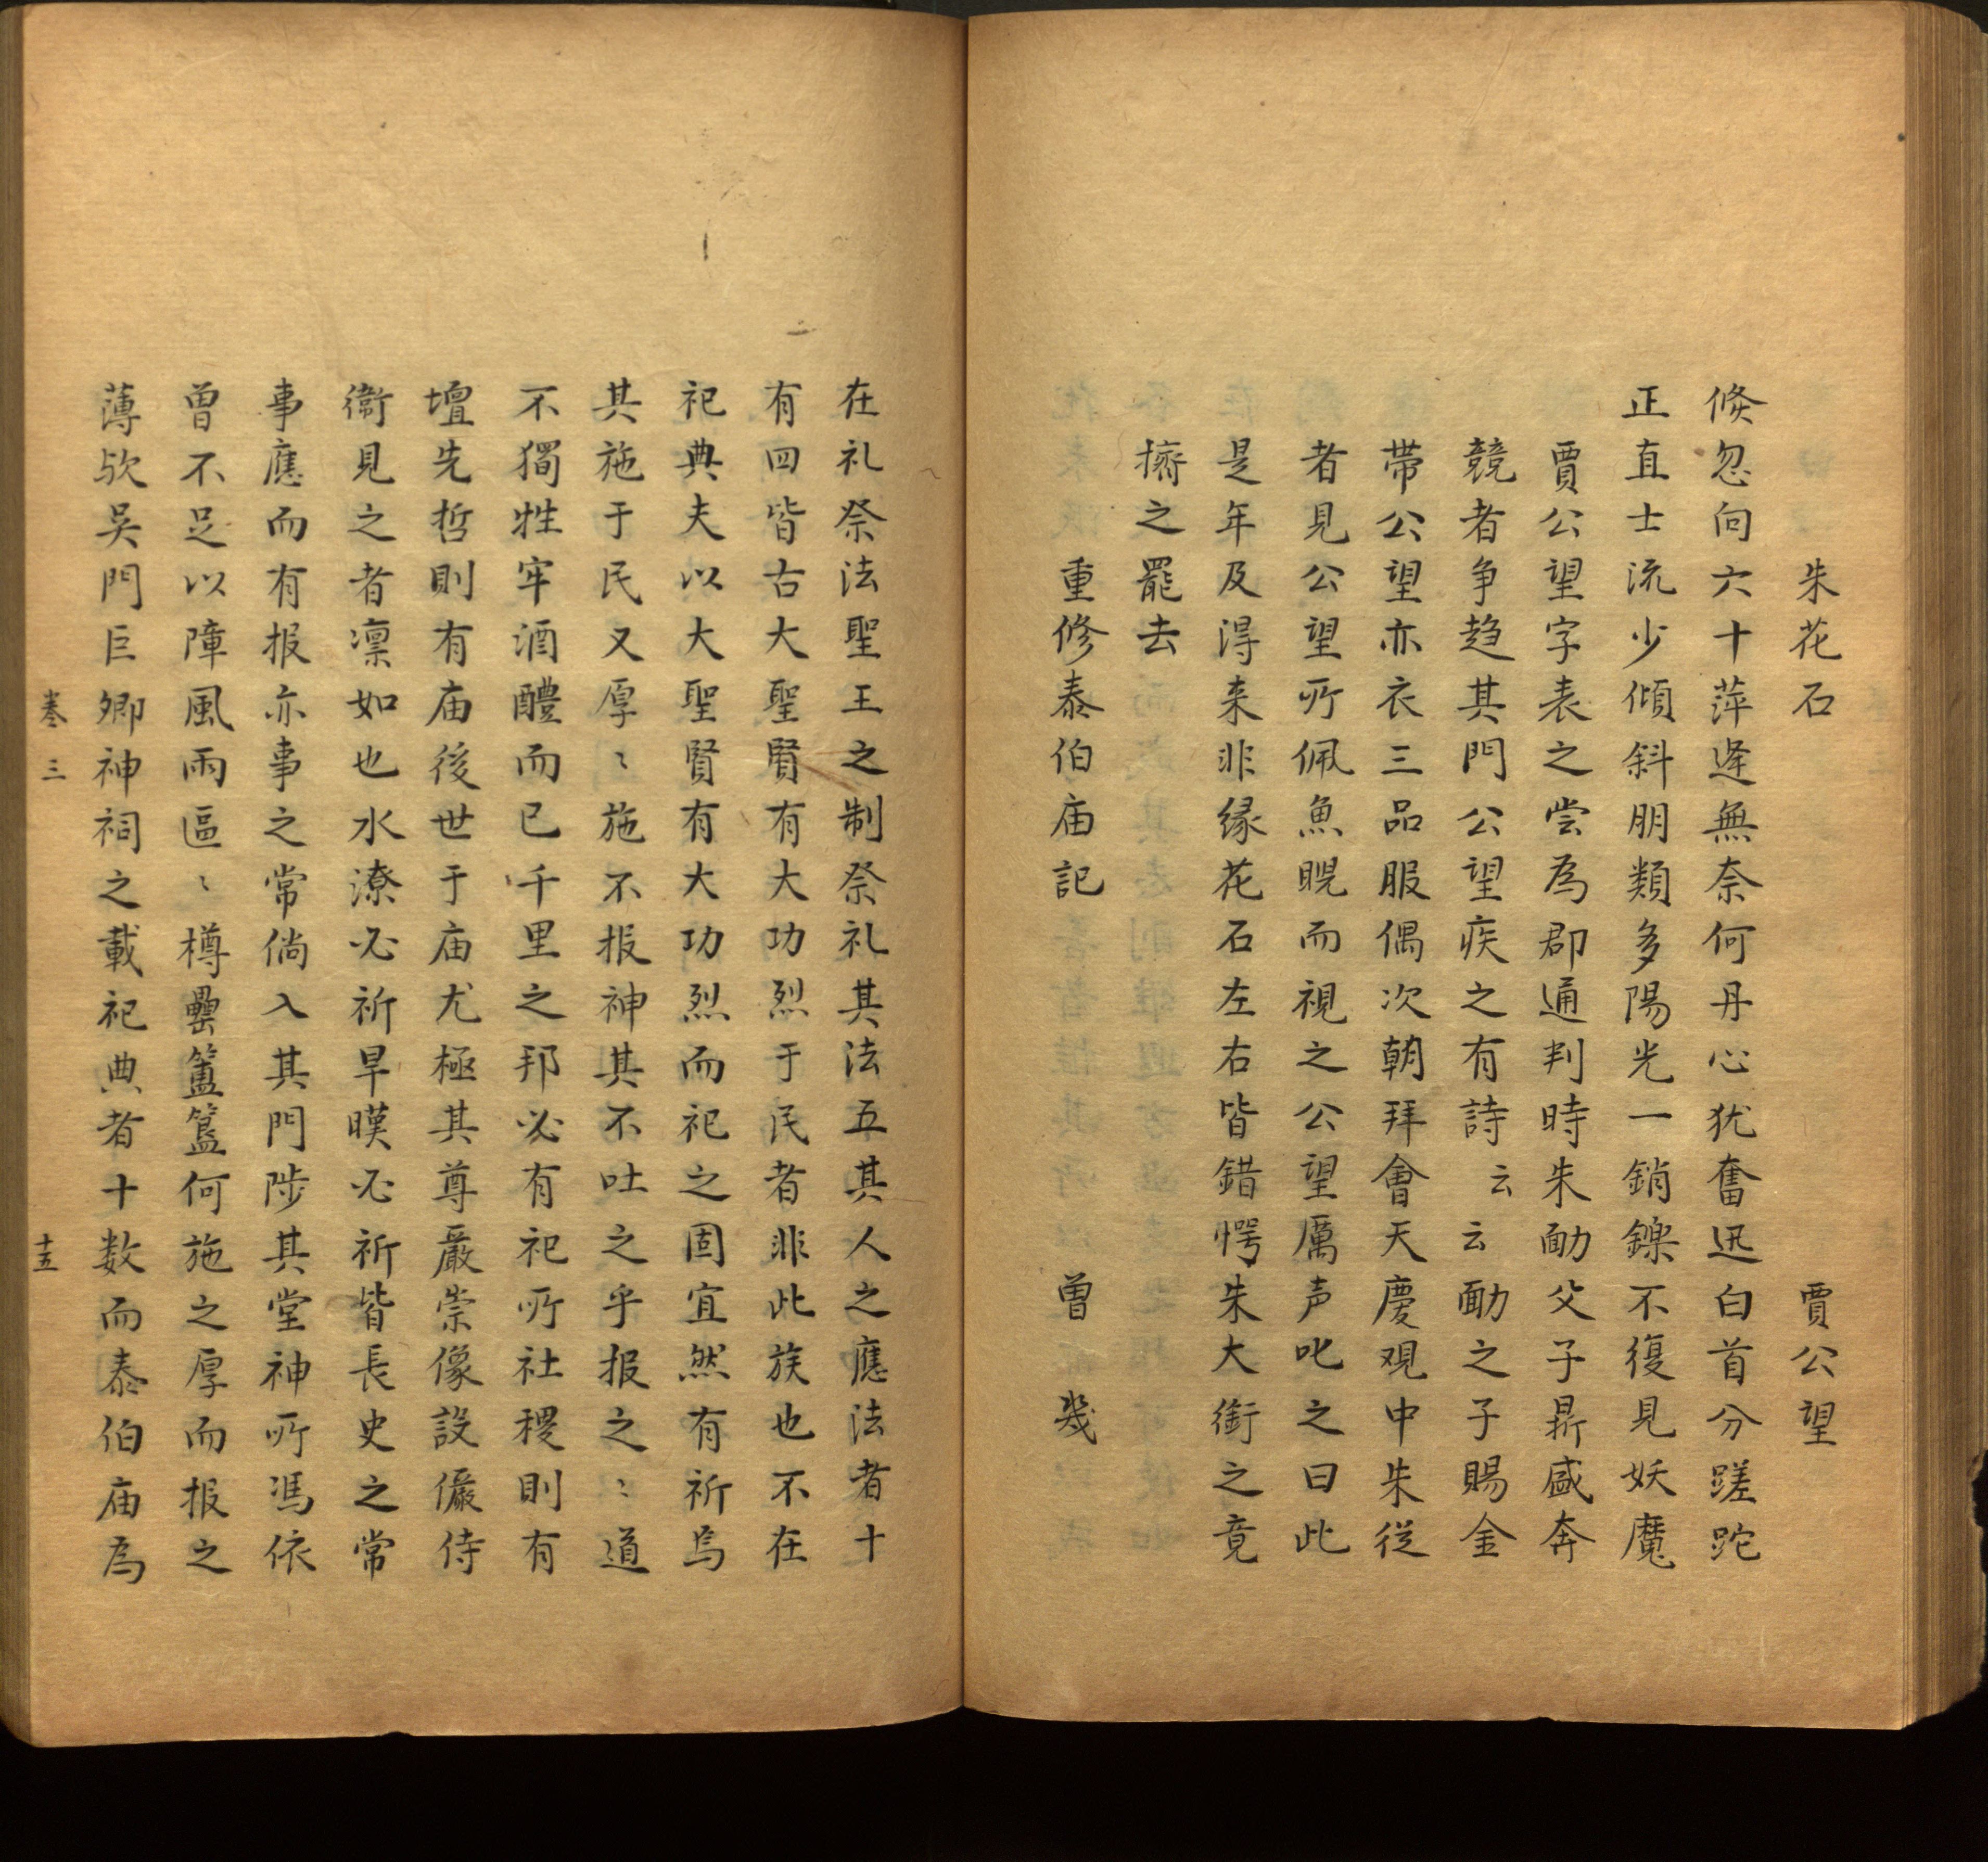 朱花石　賈公望
倐忽向六十萍逢無奈何丹心犹奮迅白首分蹉跎
正直士流少傾斜朋類多陽光一銷鑠不復見妖魔
賈公望字表之尝為郡通判時朱勔父子昺盛奔
競者争趋其門公望疾之有詩云云勔之子賜金
带公望亦衣三品服偶次朝拜會天慶观中朱從
者見公望所佩魚睨而視之公望厲声叱之曰此
是年及淂来非缘花石左右皆錯愕朱大銜之竟
擠之罷去
重修泰伯庙記　曾幾
在礼祭法聖王之制祭礼其法五其人之應法者十
有四皆古大聖賢有大功烈于民者非此族也不在
祀典夫以大聖賢有大功烈而祀之固宜然有祈焉
其施于民又厚〻施不报神其不吐之乎报之〻道
不獨牲牢酒醴而已千里之邦必有祀所社稷則有
壇先哲則有庙後世于庙尤極其尊嚴崇像設儼侍
衛見之者凛如也水潦必祈旱暵必祈皆長史之常
事應而有报亦事之常倘入其門陟其堂神所馮依
曾不足以障風雨區〻樽罍簠簋何施之厚而报之
薄欤吴門巨卿神祠之載祀典者十数而泰伯庙為
卷三　十五